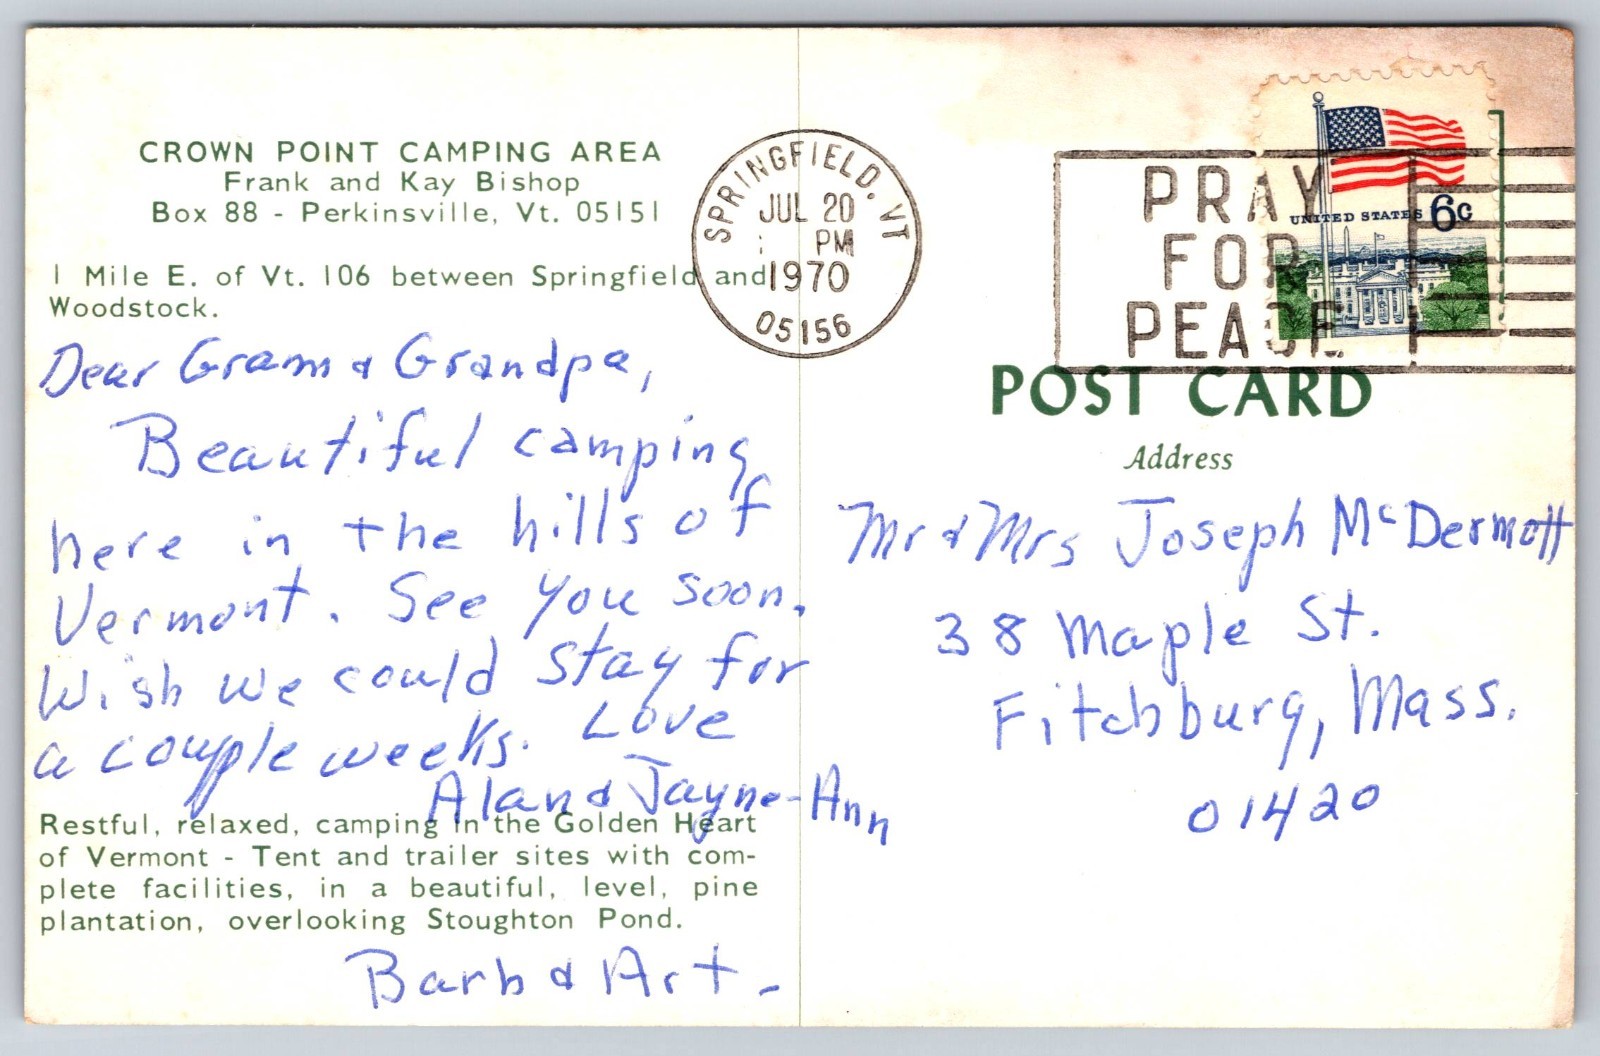 CROWN POINT CAMPING AREA
Frank and Kay Bishop
Box 88 - Perkinsville, Vt. 05151
1 Mile E. of Vt. 106 between Springfield and
Woodstock.
Dear Gram & Grandpa,
Beautiful camping
here in the hills of
Vermont. See you soon.
Wish we could stay for
a couple weeks. Love
Alan & Jayne-Ann
Restful, relaxed, camping in the Golden Heart
of Vermont - Tent and trailer sites with com-
plete facilities, in a beautiful, level, pine
plantation, overlooking Stoughton Pond.
Barb & Art.
SPRINGFIELD, VT
JUL 20
PM
1970
05156
PRAY
FOR
PEACE
UNITED STATES 6c
POST CARD
Address
Mr & Mrs Joseph McDermott
38 Maple St.
Fitchburg, Mass.
01420